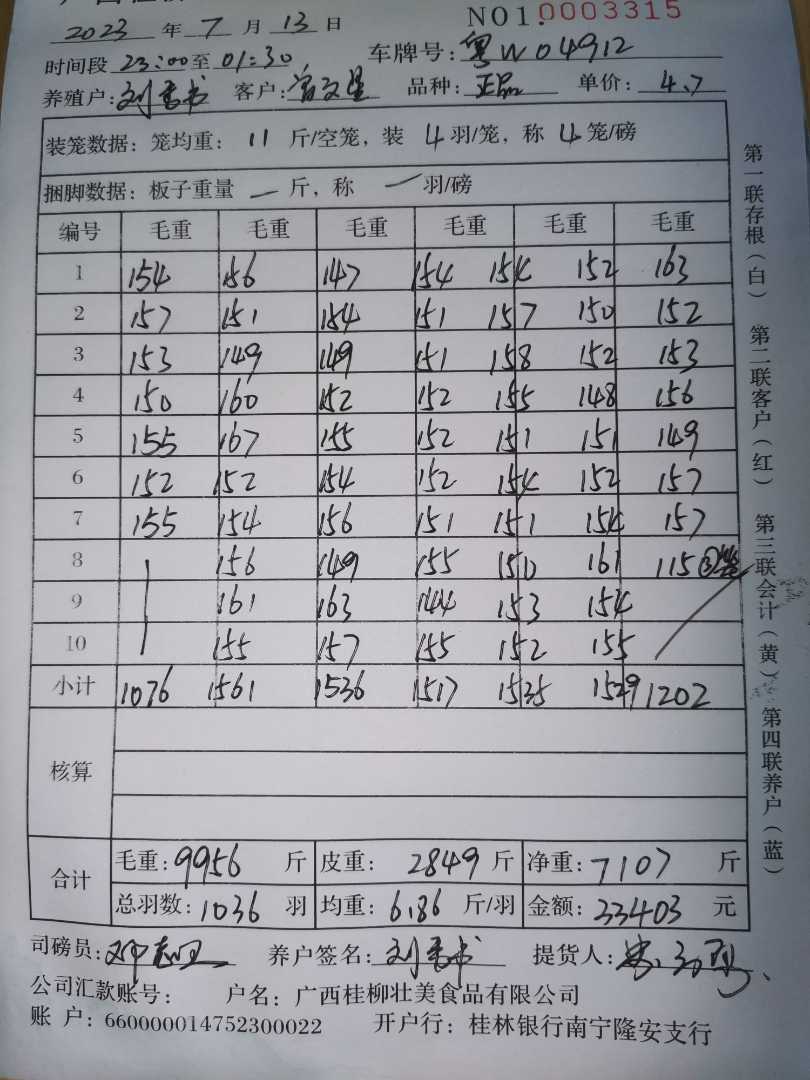 2023 年 7 月 13 日 NO1: 0003315
时间段 23:00至 01:30 车牌号: 粤W04912
养殖户: 刘 书 客户: 品种: 正品 单价: 4.7
装笼数据: 笼均重: 11 斤/空笼, 装 4 羽/笼, 称 4 笼/磅
捆脚数据: 板子重量 — 斤, 称 — 羽/磅
编号 毛重 毛重 毛重 毛重 毛重 毛重
1 154 156 147 154 154 152 163
2 157 151 154 151 157 150 152
3 153 149 149 151 158 152 153
4 150 160 152 152 155 148 156
5 155 167 155 152 151 151 149
6 152 152 154 152 154 152 157
7 155 154 156 151 151 154 157
8 156 149 155 150 161 115 ③笼
9 161 163 144 153 154
10 155 157 155 152 155
小计 1076 1561 1536 1517 1535 1529 1202
核算
合计
毛重: 9956 斤 皮重: 2849 斤 净重: 7107 斤
总羽数: 1036 羽 均重: 6.86 斤/羽 金额: 33403 元
司磅员: 养户签名: 刘 书 提货人:
公司汇款账号: 户名: 广西桂柳壮美食品有限公司
账 户: 660000014752300022 开户行: 桂林银行南宁隆安支行
第一联存根(白) 第二联客户(红) 第三联会计(黄) 第四联养户(蓝)